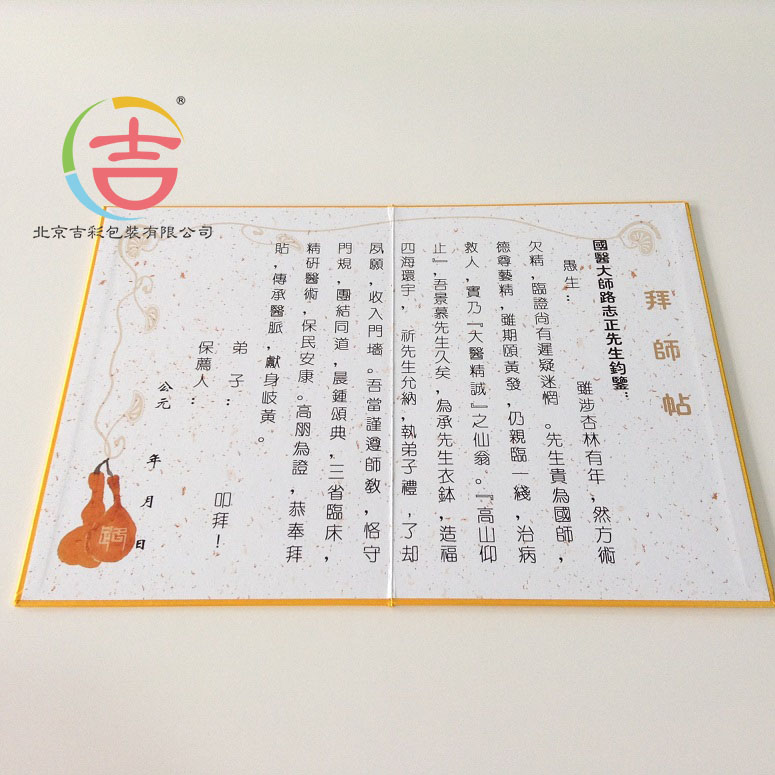 吉
®
北京吉彩包裝有限公司
拜師帖
國醫大師路志正先生鈞鑒：
愚生：
雖涉杏林有年，然方術
欠精，臨證尚有遲疑迷惘。先生貴為國師，
德尊藝精，雖期頤黃發，仍親臨一綫，治病
救人，實乃『大醫精誠』之仙翁。『高山仰
止』，吾景慕先生久矣，為承先生衣鉢，造福
四海環宇，祈先生允納，執弟子禮，了却
夙願，收入門墻。吾當謹遵師教，恪守
門規，團結同道，晨鍾頌典，三省臨床，
精研醫術，保民安康。高朋為證，恭奉拜
貼，傳承醫脈，獻身岐黃。
弟子：
叩拜！
保薦人：
公元 年 月 日